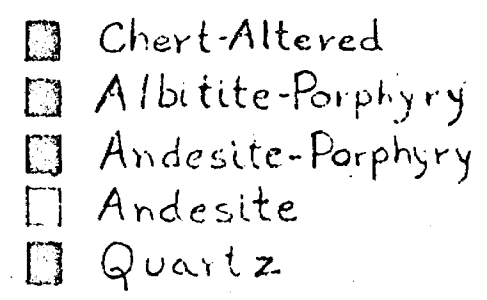 Chert-Altered
Albitite-Porphyry
Andesite-Porphyry
Andesite
Quartz